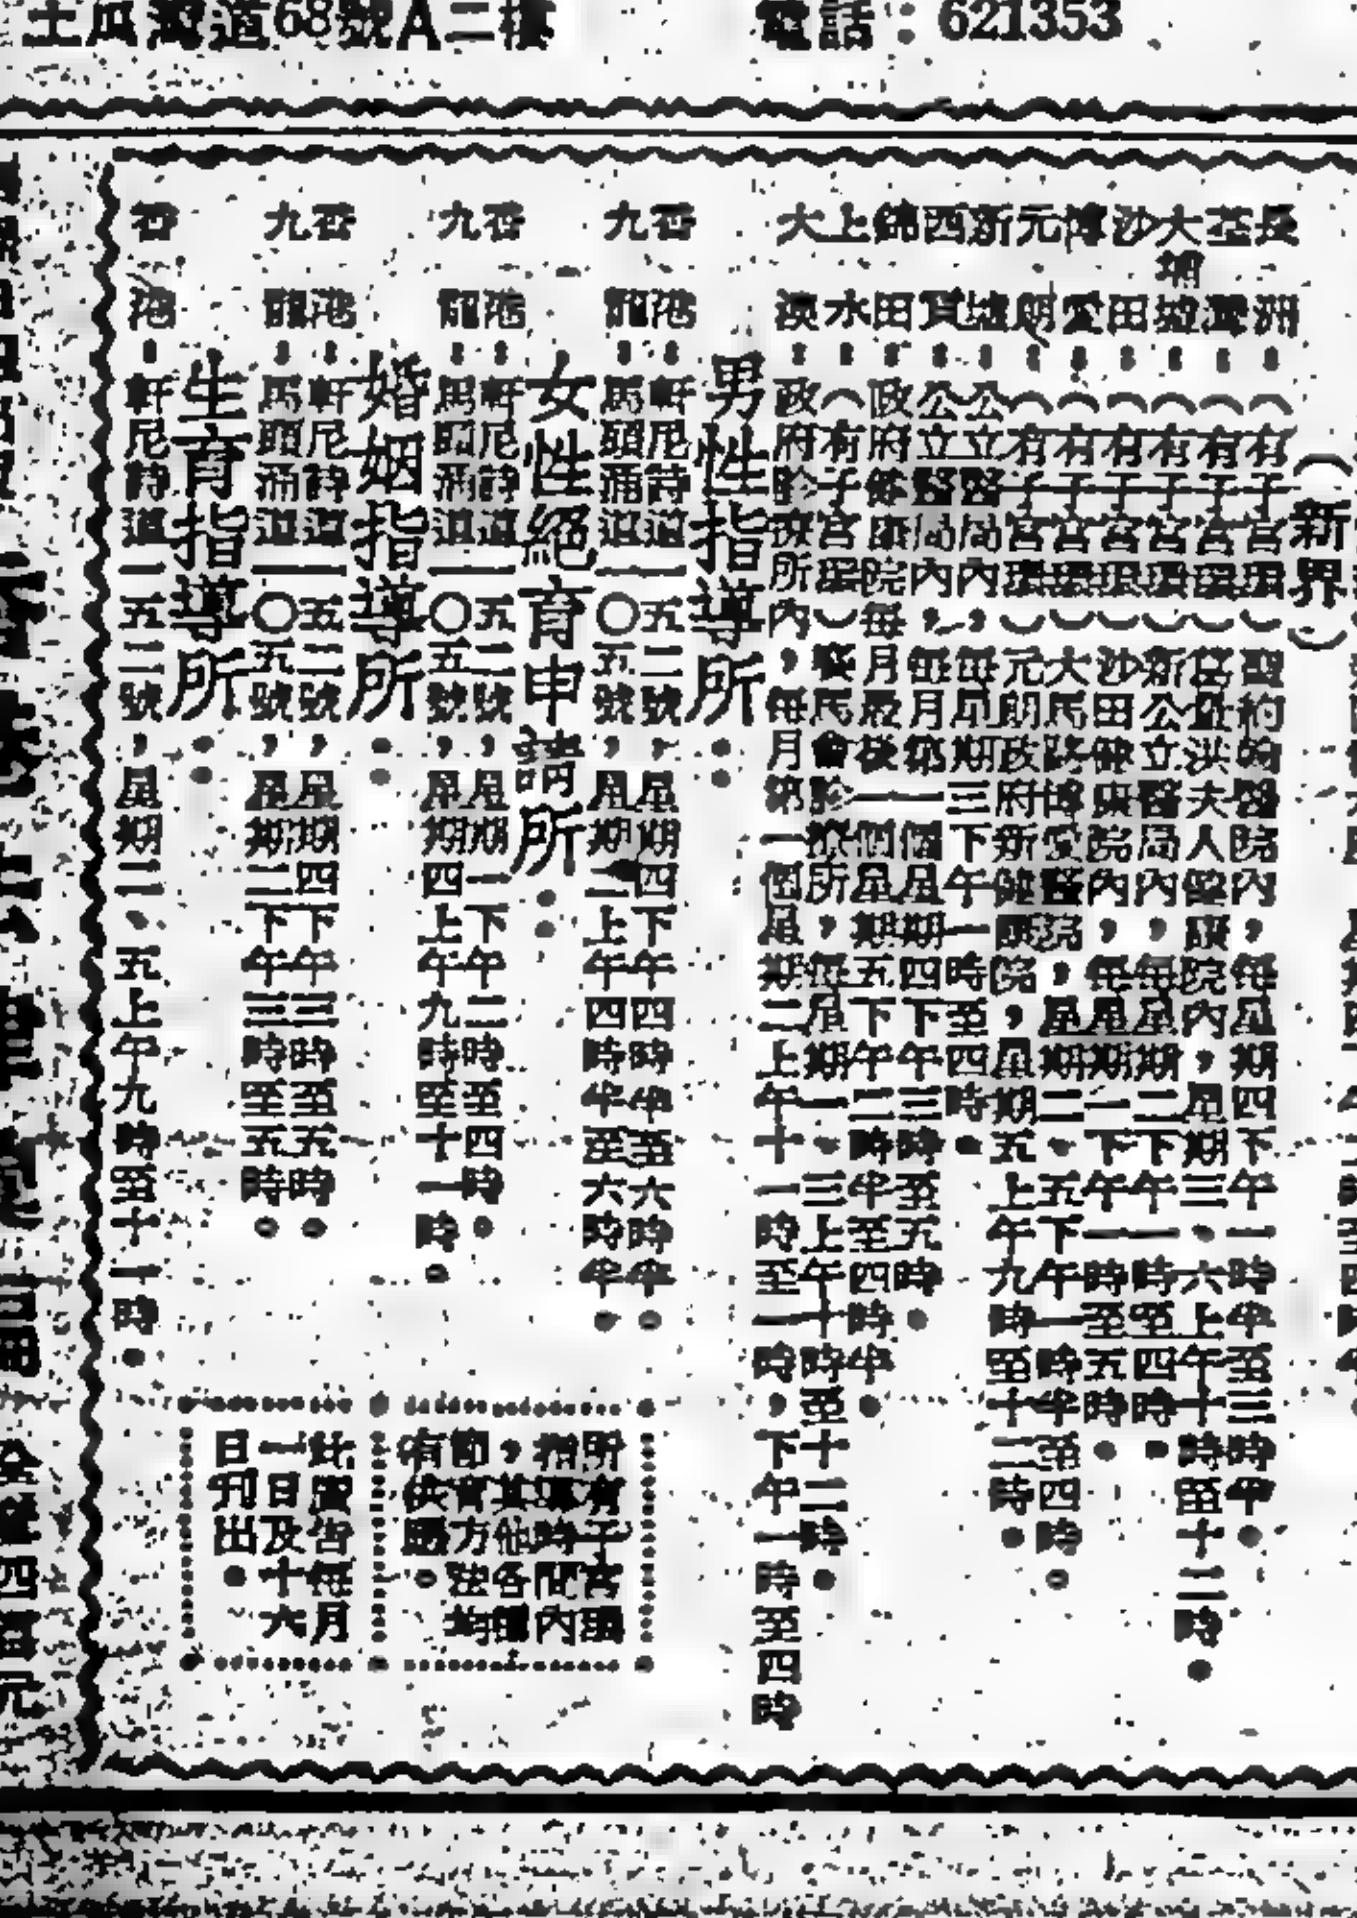 土瓜灣道68號A二樓　電話：621353
（新界）
長洲：（有子宮環）聖約翰醫院內，每星期四下午一時半至三時半。
荃灣：（有子宮環）洪夫人健康院內，星期三、六上午十時至十二時。
大埔墟：（有子宮環）新公立醫局內，每星期二下午一時至四時。
沙田：（有子宮環）沙田健康院內，每星期一下午一時至五時。
博愛：（有子宮環）大馬路博愛醫院，星期二、五下午一時半至四時。
元朗：（有子宮環）元朗政府新健康院，星期五上午九時至十二時。
新墟：公立醫局內，每星期三下午一時至四時。
西貢：公立醫局內，每月第一個星期四下午三時至五時。
錦田：政府健康院每月最後一個星期五下午二時半至四時半。
上水：（有子宮環）賽馬會診療所，每星期一、三上午十時至十二時。
大澳：政府診療所內，每月第一個星期二上午十一時至一時，下午一時至四時
男性指導所：
香港：軒尼詩道一五二號，星期四下午四時半至六時半。
九龍：馬頭涌道一〇五號，星期二上午四時半至六時半。
女性絕育申請所：
香港：軒尼詩道一五二號，星期一下午二時至四時。
九龍：馬頭涌道一〇五號，星期四上午九時至十一時。
婚姻指導所：
香港：軒尼詩道一五二號，星期四下午三時至五時。
九龍：馬頭涌道一〇五號，星期二下午三時至五時。
生育指導所：
香港：軒尼詩道一五二號，星期二、五上午九時至十一時。
所有子宮環
指導時間內
，其他各種
節育方法均
有供應。
此廣告每月
一日及十六
日刊出。